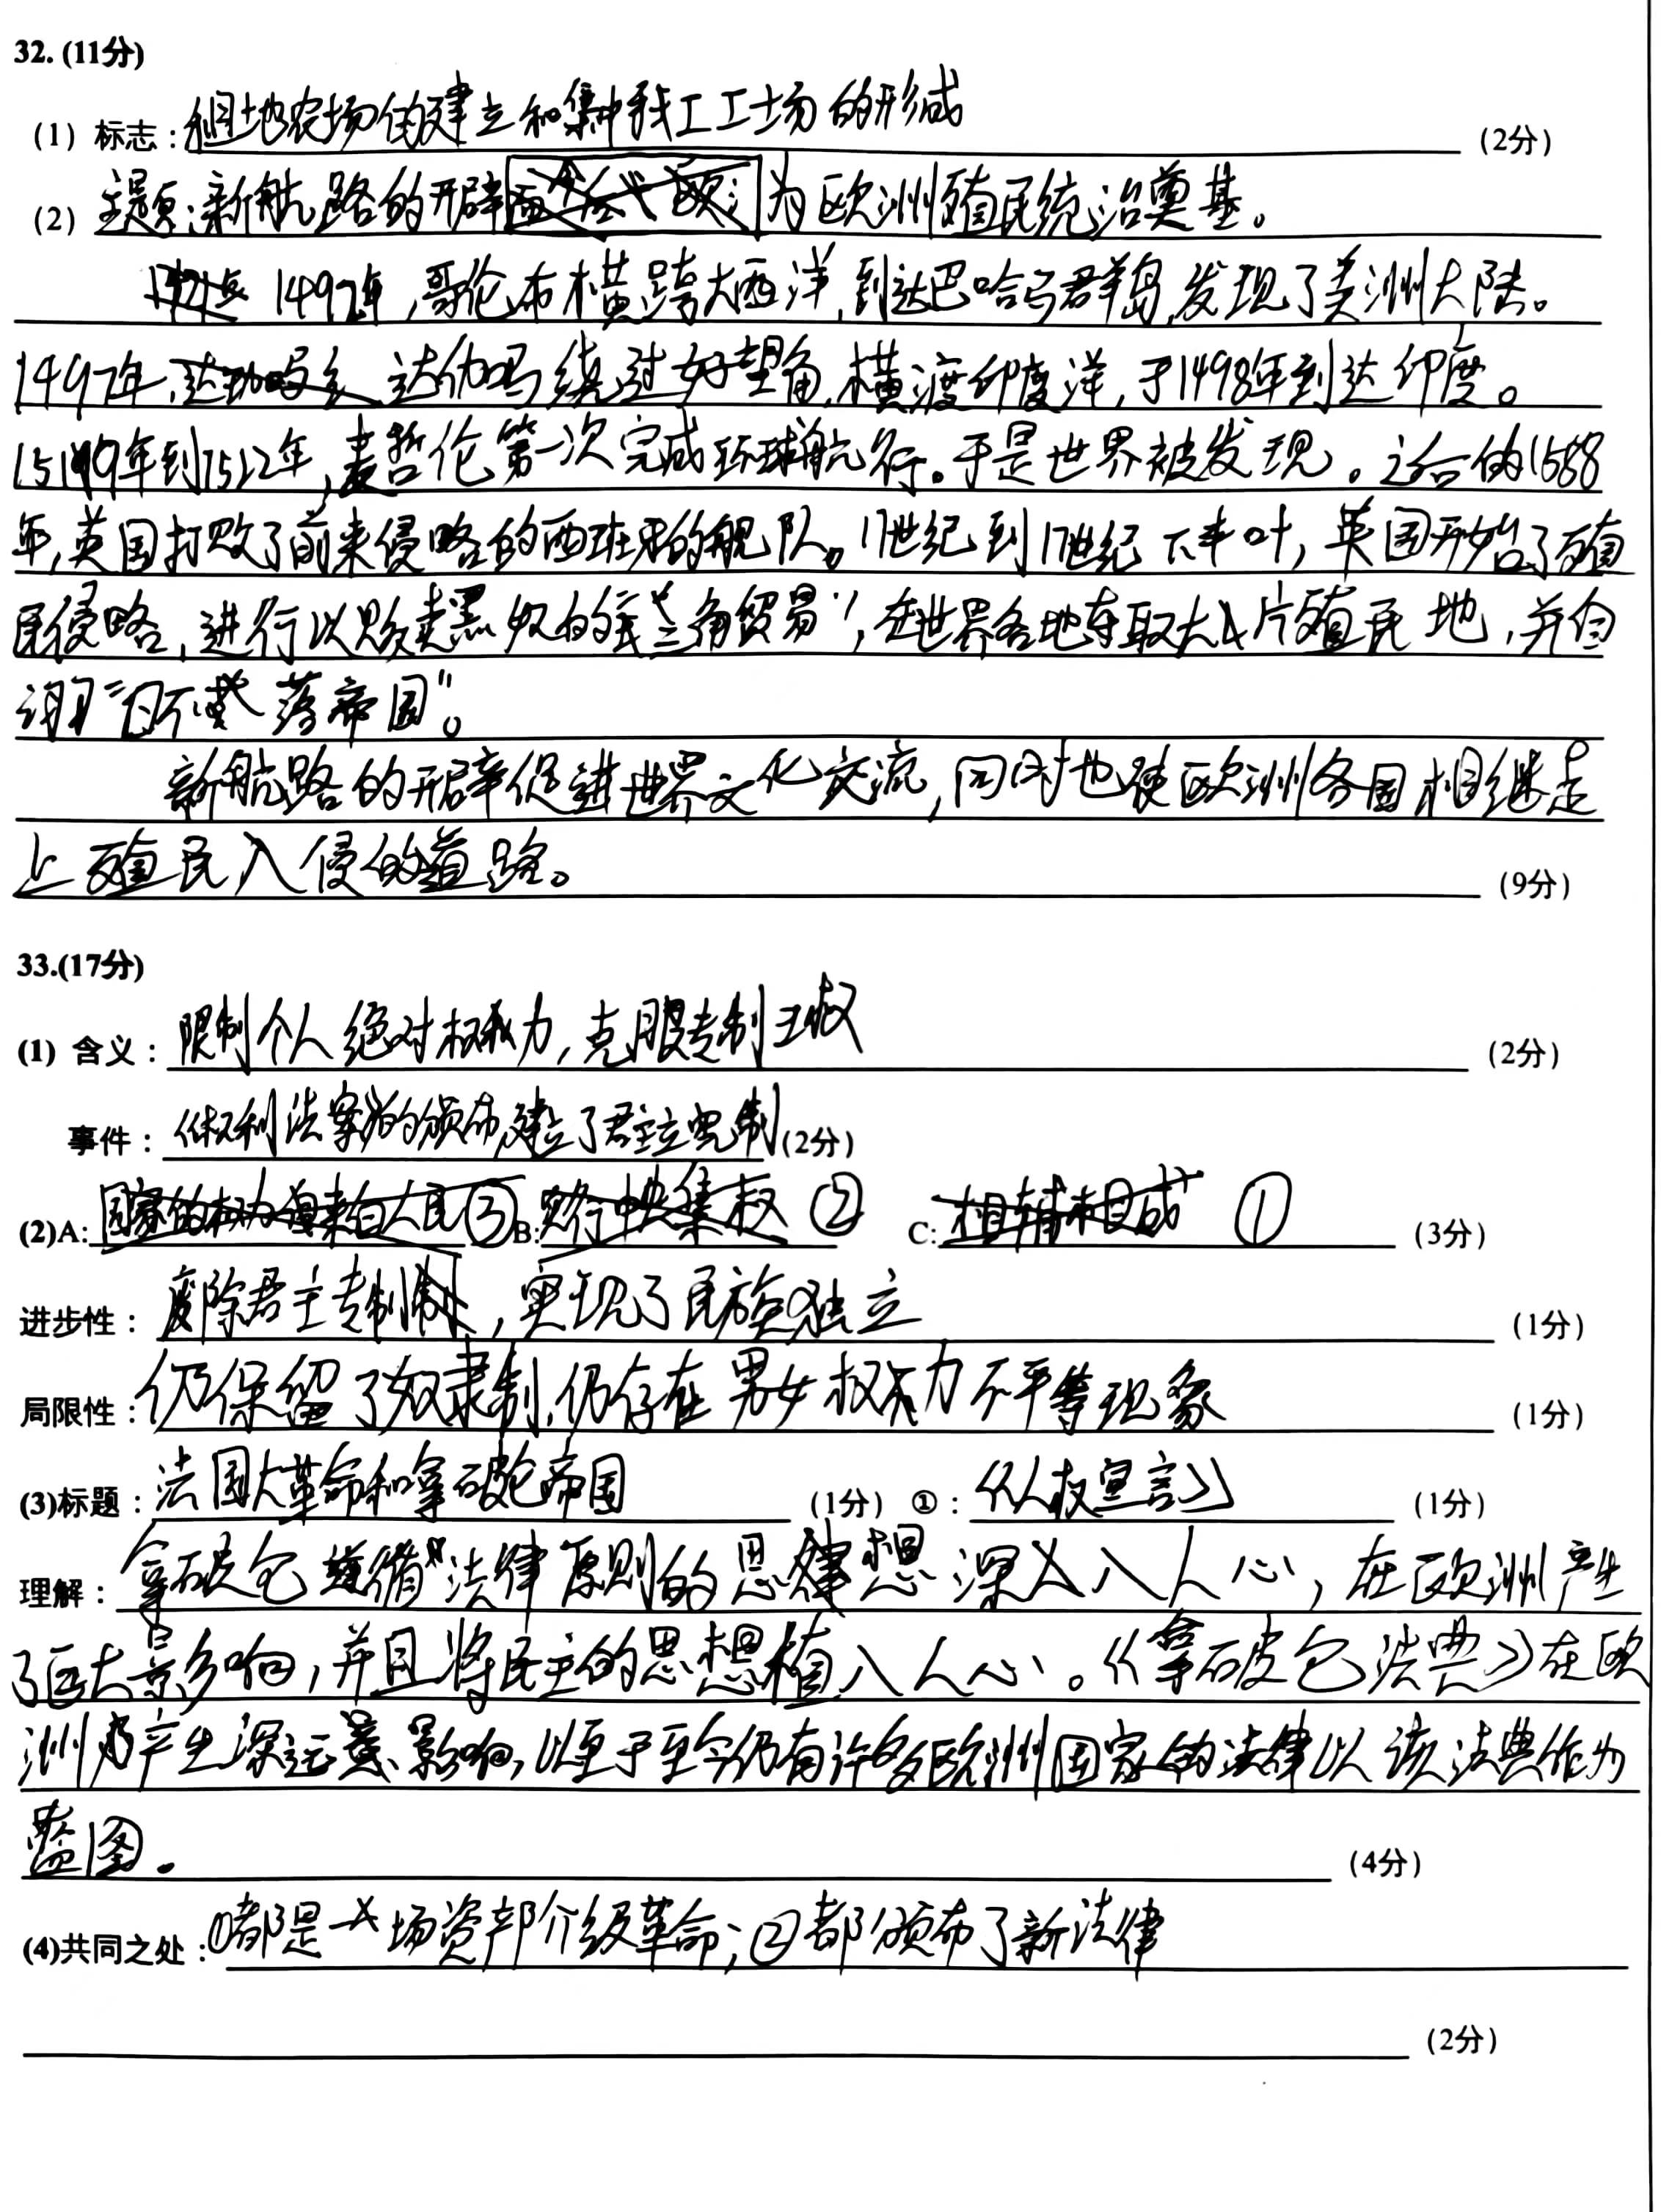 32. (11分)
(1) 标志：租地农场的建立和集中手工工场的形成 (2分)
(2) 主题：新航路的开辟为欧洲殖民统治奠基。
1492年，哥伦布横跨大西洋，到达巴哈马群岛，发现了美洲大陆。
1497年，达伽马绕过好望角，横渡印度洋，于1498年到达印度。
1519年到1522年，麦哲伦第一次完成环球航行。于是世界被发现。之后的1588
年，英国打败了前来侵略的西班牙的舰队。17世纪到17世纪下半叶，英国开始了殖
民侵略，进行以贩卖黑奴的"三角贸易"，在世界各地夺取大片殖民地，并自
诩"日不落帝国"。
新航路的开辟促进世界文化交流，同时也使欧洲各国相继走
上殖民入侵的道路。 (9分)
33.(17分)
(1) 含义：限制个人绝对权力，克服专制王权 (2分)
事件：《权利法案》的颁布，建立了君主立宪制 (2分)
(2)A: ③ B: ② C: ① (3分)
进步性：废除君主专制，实现了民族独立 (1分)
局限性：仍保留了奴隶制，仍存在男女权力不平等现象 (1分)
(3)标题：法国大革命和拿破仑帝国 (1分) ①：《人权宣言》 (1分)
理解：拿破仑遵循"法律原则的思想深入人心，在欧洲产生
了巨大影响，并且将民主的思想植入人心。《拿破仑法典》在欧
洲产生深远影响，以至于至今仍有许多欧洲国家的法律以该法典作为
蓝图。 (4分)
(4)共同之处：①都是一场资产阶级革命；②都颁布了新法律
(2分)